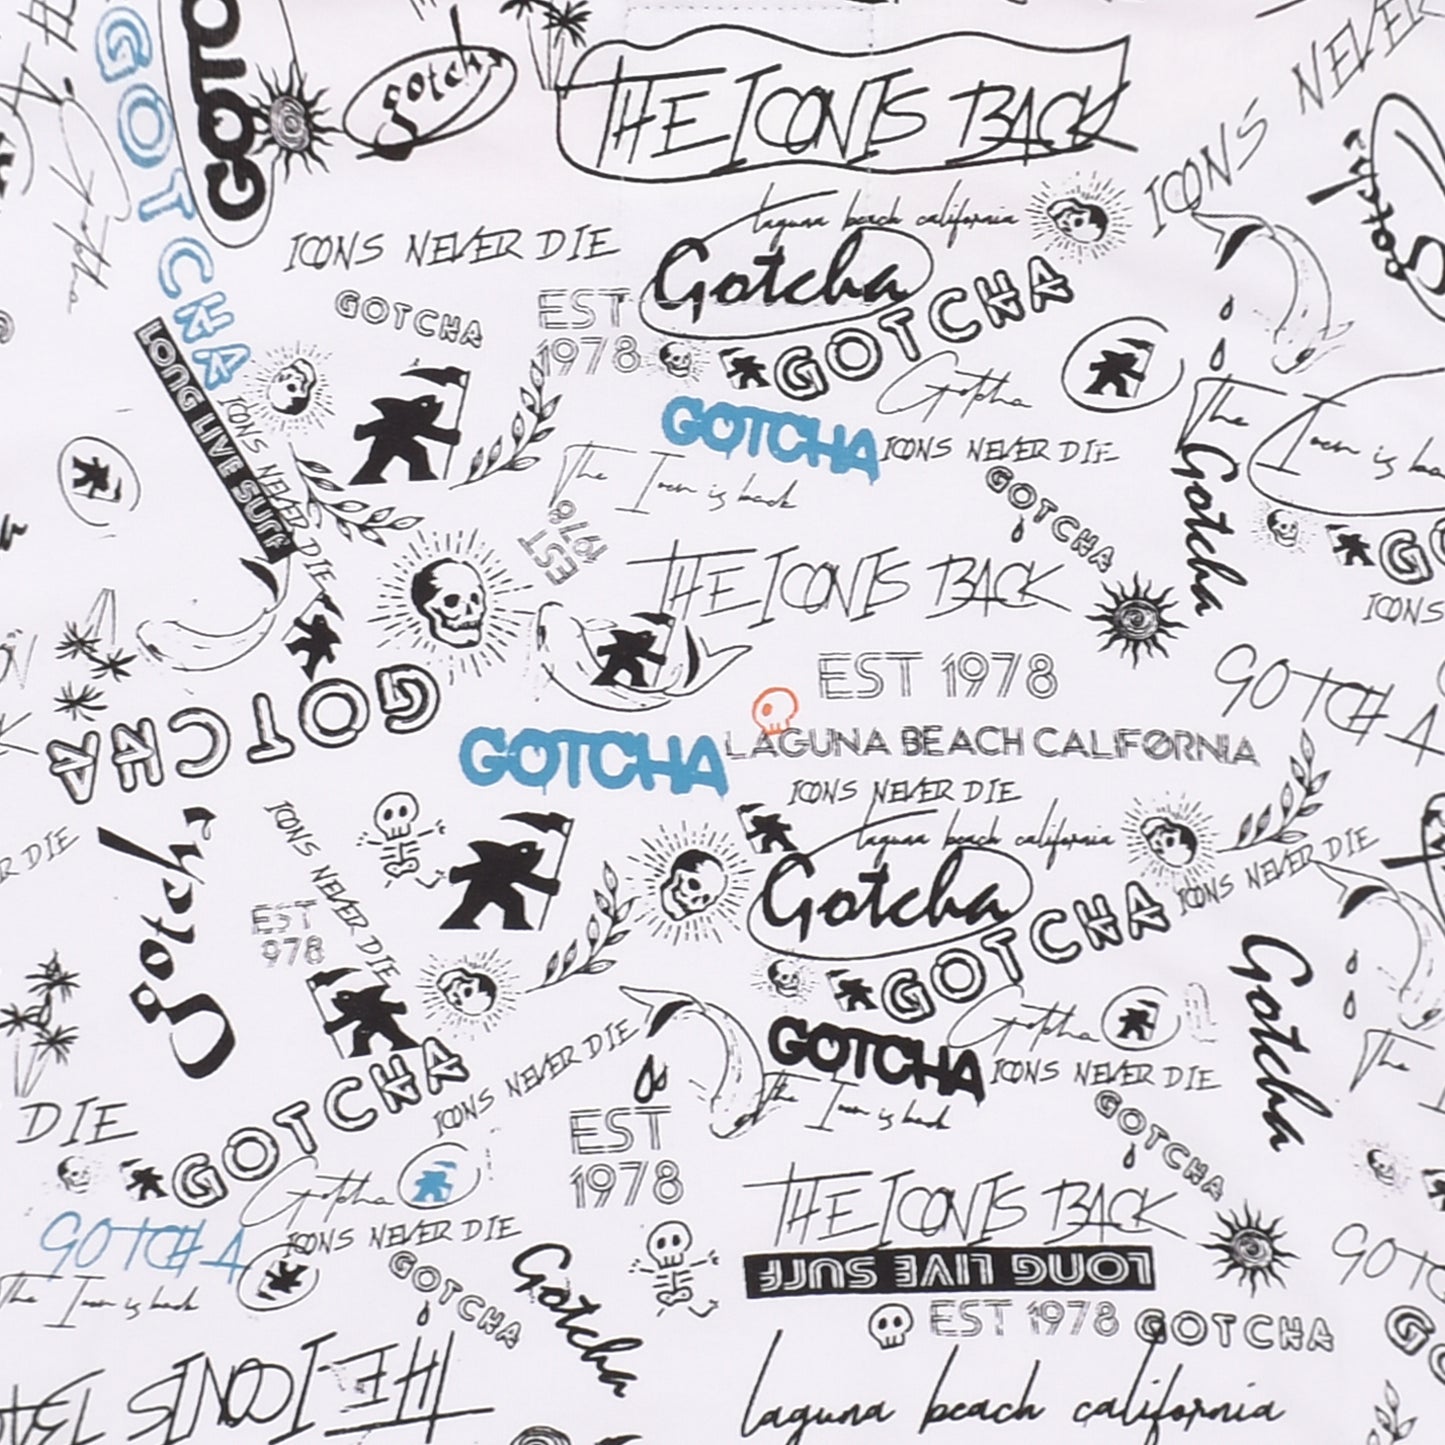 GOTCHA
GOTC
gotcha
THE ICON IS BACK
ICONS NEVER
ICONS
Gotcha
gotcha
laguna beach california
Gotcha
ICONS NEVER DIE
GOTCHA
EST
1978
GOTCHA
Gotcha
LONG LIVE SURF
ICONS NEVER DIE
GOTCHA
ICONS NEVER DIE
The Icon is back
The Icon is ba
Gotcha
GOTCHA
EST
1978
THE ICON IS BACK
GO
ICONS
EST 1978
GOTCHA
GOTCHA
GOTCHA
LAGUNA BEACH CALIFORNIA
ICONS NEVER DIE
laguna beach california
Gotcha
GOTCHA
ICONS NEVER DIE
R DIE
gotcha
ICONS NEVER DIE
EST
978
Gotcha
Gotcha
GOTCHA
ICONS NEVER DIE
The Icon is back
The
GOTCHA
ICONS NEVER DIE
EST
1978
GOTCHA
DIE
Gotcha
THE ICON IS BACK
GOTCHA
ICONS NEVER DIE
The Icon is back
GOTCHA
Gotcha
LONG LIVE SURF
EST 1978
GOTCHA
GOTC
GO
THE ICON IS BA
laguna beach california